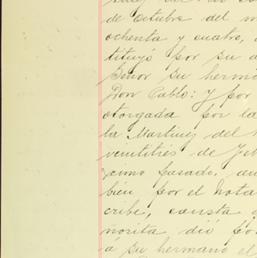 de Octubre del m
ochenta y cuatro,
tituyó por su
Señor su herm
Don Pablo: Y por
otorgada por la
la Martinez del
veintitres de Feb
ximo pasado, an
bien por el Nota
cribe, consta q
ñorita, dió po
á su hermano el